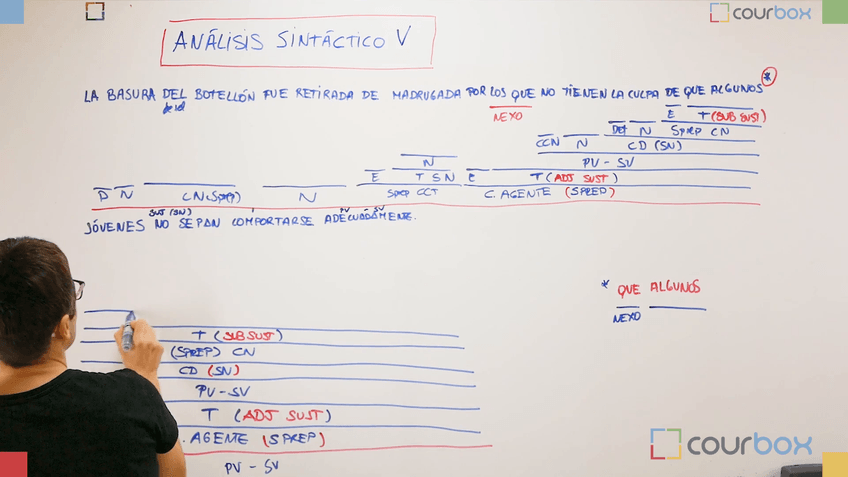 courbox
ANÁLISIS SINTÁCTICO V
LA BASURA DEL BOTELLÓN FUE RETIRADA DE MADRUGADA POR LOS QUE NO TIENEN LA CULPA DE QUE ALGUNOS*
de el
NEXO
E T (SUB SUST)
DET N SPREP CN
CCN N CD (SN)
N PV - SV
E T SN E T (ADJ SUST)
D N CN (SPREP) N SPREP CCT C. AGENTE (SPREP)
SUJ (SN) PV - SV
JÓVENES NO SEPAN COMPORTARSE ADECUADAMENTE.
* QUE ALGUNOS
NEXO
T (SUB SUST)
(SPREP) CN
CD (SN)
PV - SV
T (ADJ SUST)
. AGENTE (SPREP)
PV - SV
courbox